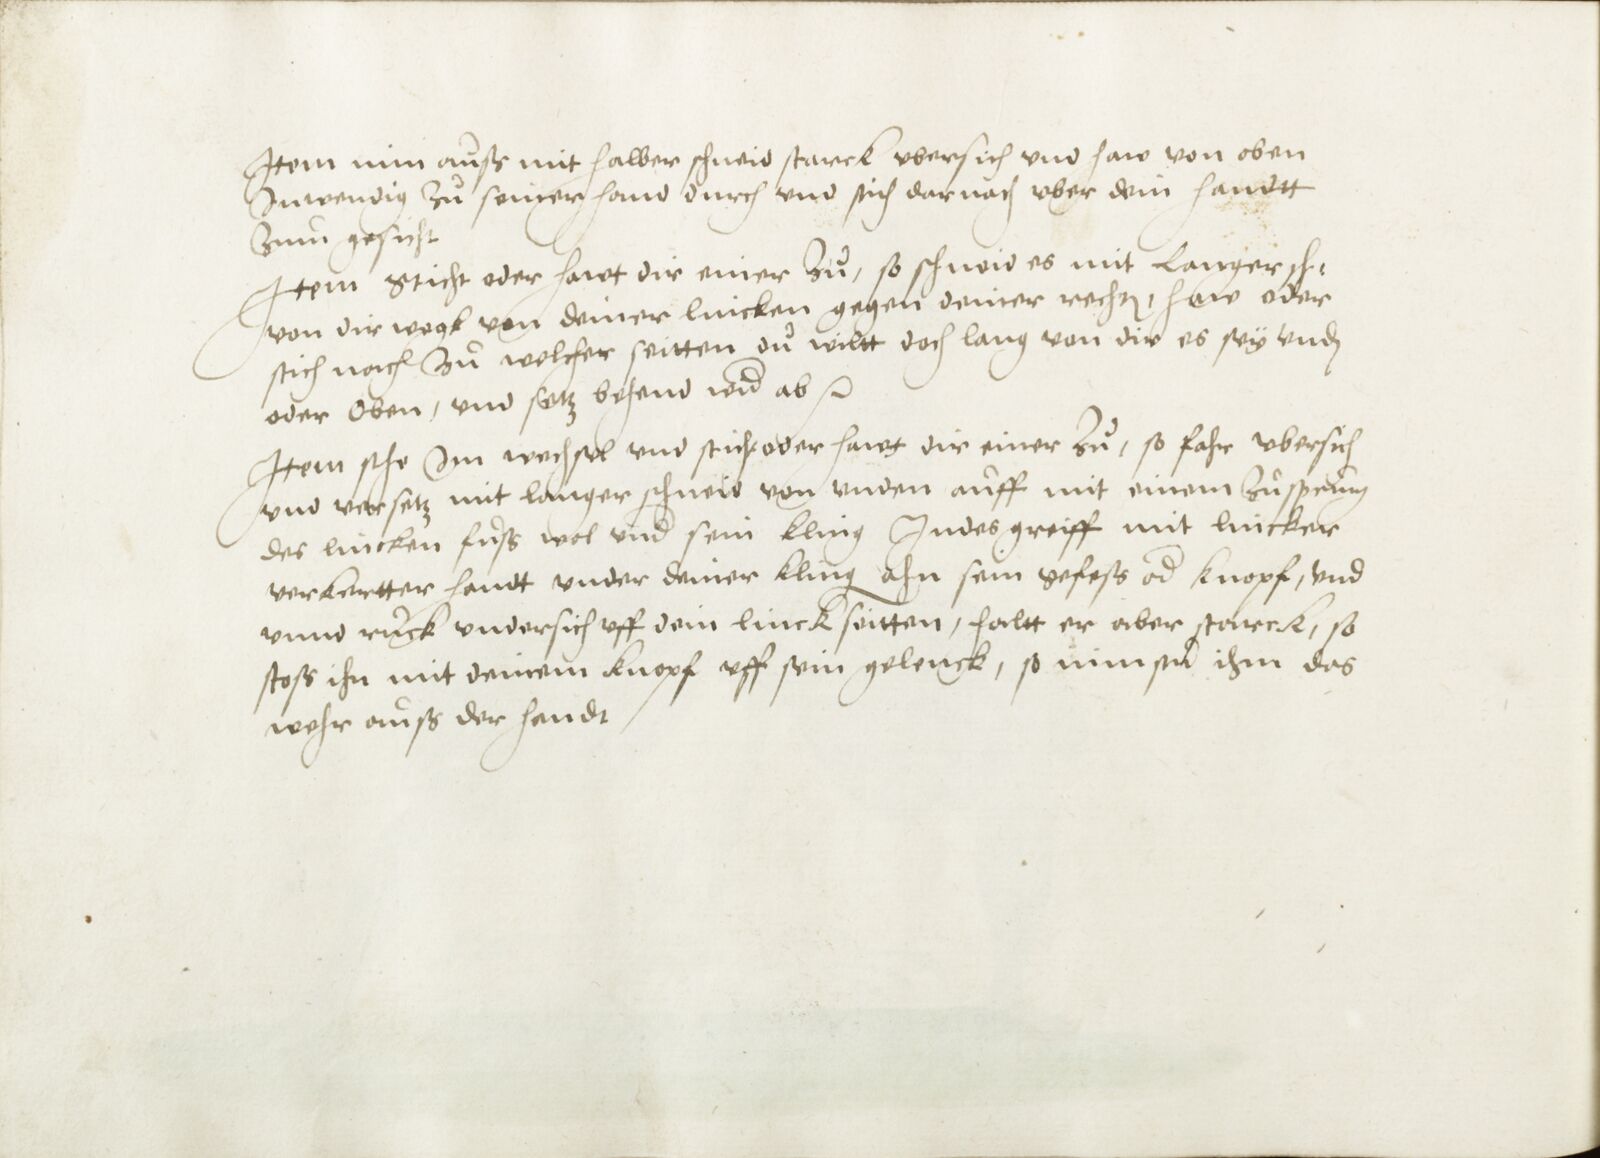 Item nim auß mit halber schneid starck vbersich vnd haw von oben
Inwendig zu seiner hand durch vnd stich darnach vber dein handtt
zum gesicht
Item sticht oder hawt dir einer zu, so schneid es mit langer sch:
von dir wegk von deiner lincken gegen deiner rechten, haw oder
stich nach zu welcher seitten du wiltt doch lang von dir es sey vnden
oder oben, vnd setz behend wid ab
Item stehe Im wechsel vnd sticht oder hawt dir einer zu, so fahr vbersich
vnd versetz mit langer schneid von vnden auff mit einem zusprung
des lincken fuß wol vnd sein kling Indes greiff mit lincker
verkertter handt vnder deiner kling ahn sein gefeß od knopf, vnd
vnnd ruck vndersich vff dein linck seitten, haltt er aber starck, so
stoß ihn mit deinem knopf vff sein gelenck, so nimstu ihm das
wehr auß der handt